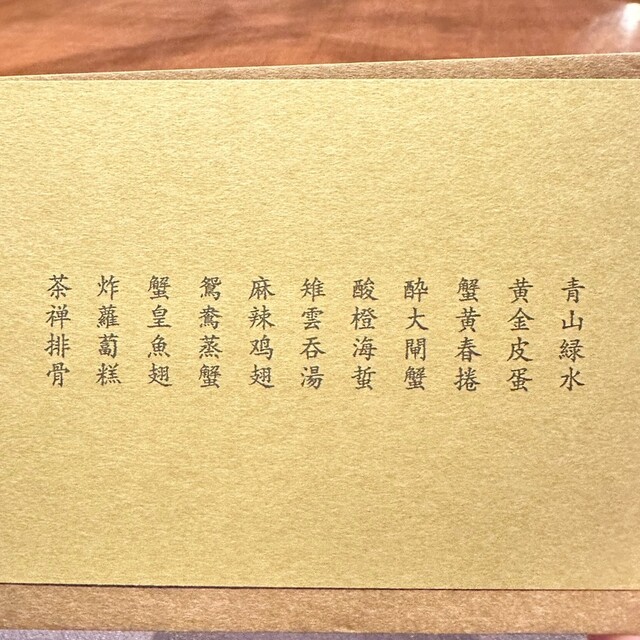 青山緑水
黄金皮蛋
蟹黄春捲
酔大閘蟹
酸橙海蜇
雉雲吞湯
麻辣鸡翅
鴛鴦蒸蟹
蟹皇魚翅
炸蘿蔔糕
茶禅排骨